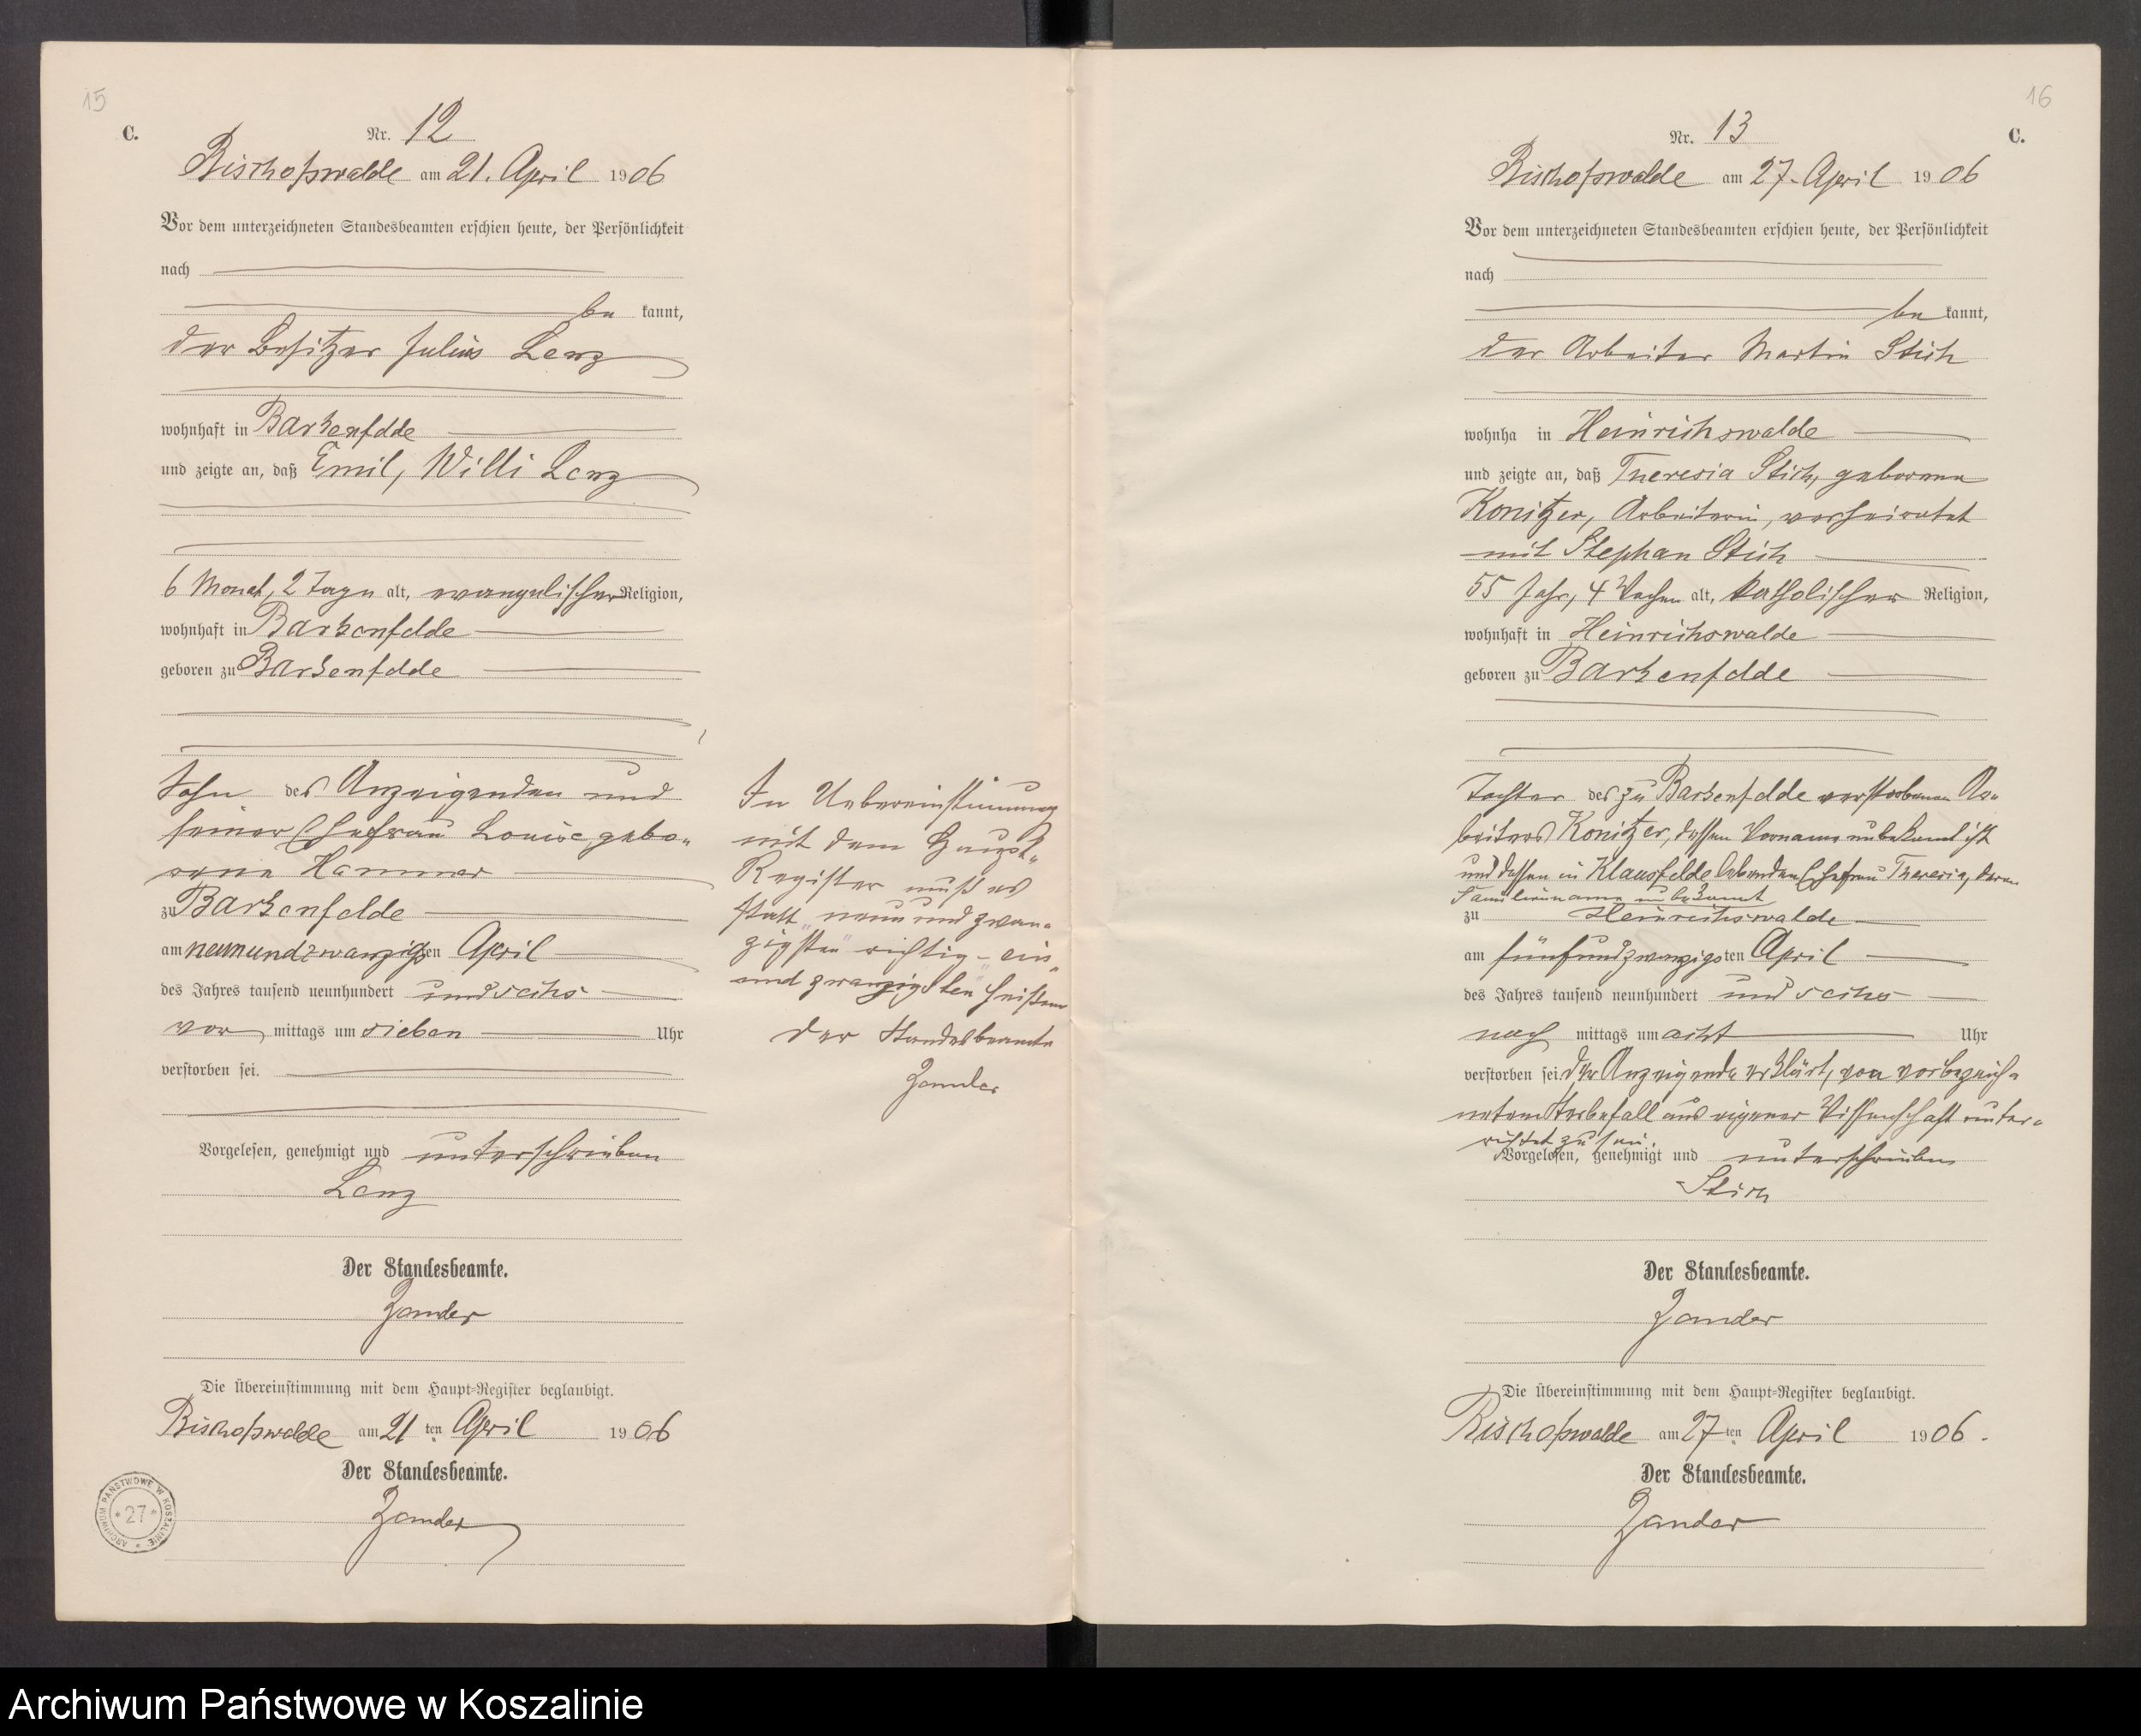 15
C.
Nr. 12
Bischofswalde am 21. April 1906
Vor dem unterzeichneten Standesbeamten erschien heute, der Persönlichkeit
nach
be kannt,
der Besitzer Julius Lenz
wohnhaft in Barkenfelde
und zeigte an, daß Emil, Willi Lenz
6 Monat, 2 Tage alt, evangelischer Religion,
wohnhaft in Barkenfelde
geboren zu Barkenfelde
Sohn des Anzeigenden und
seiner Ehefrau Louise, gebo-
rene Hammer
zu Barkenfelde
am neunundzwanzigsten April
des Jahres tausend neunhundert und sechs
vor mittags um sieben Uhr
verstorben sei.
Vorgelesen, genehmigt und unterschrieben
Lenz
Der Standesbeamte.
Zander
Die Übereinstimmung mit dem Haupt-Register beglaubigt.
Bischofswalde am 21 ten April 1906
Der Standesbeamte.
Zander
ARCHIWUM PAŃSTWOWE W KOSZALINIE
* 27 *
In Uebereinstimmung
mit dem Haupt-
Register muß es
statt "neunundzwan-
zigsten" richtig - "ein
und zwanzigsten" heißen
Der Standesbeamte
Zander
16
C.
Nr. 13
Bischofswalde am 27. April 1906
Vor dem unterzeichneten Standesbeamten erschien heute, der Persönlichkeit
nach
be kannt,
der Arbeiter Martin Stich
wohnha in Heinrichswalde
und zeigte an, daß Theresia Stich, geborene
Konitzer, Arbeiterin, verheiratet
mit Stephan Stich
55 Jahr, 4 Wochen alt, katholischer Religion,
wohnhaft in Heinrichswalde
geboren zu Barkenfelde
Tochter des zu Barkenfelde verstorbenen Ar-
beiters Konitzer, dessen Vorname unbekannt ist
und dessen in Klausfelde lebenden Ehefrau Theresia, deren
Familienname unbekannt
zu Heinrichswalde
am fünfundzwanzigsten April
des Jahres tausend neunhundert und sechs
nach mittags um acht Uhr
verstorben sei. Der Anzeigende erklärt, von vorbezeich-
netem Sterbefall aus eigener Wissenschaft unter-
richtet zu sein.
Vorgelesen, genehmigt und unterschrieben
Stich
Der Standesbeamte.
Zander
Die Übereinstimmung mit dem Haupt-Register beglaubigt.
Bischofswalde am 27 ten April 1906.
Der Standesbeamte.
Zander
Archiwum Państwowe w Koszalinie